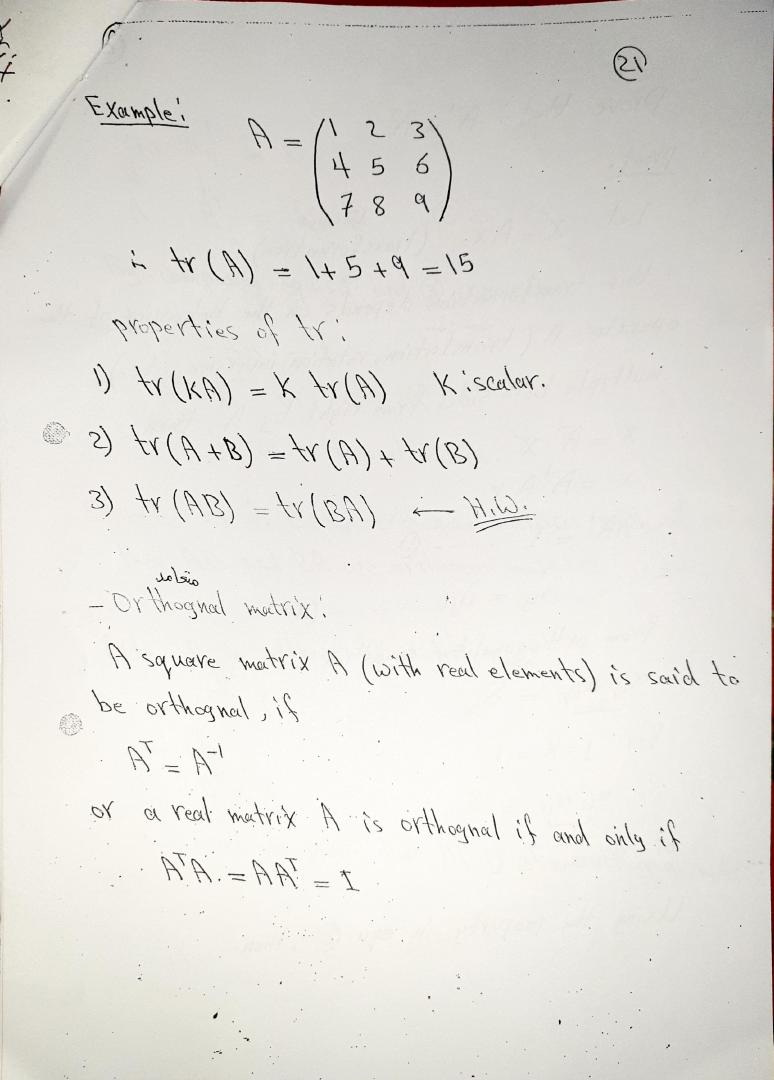 21
Example:
A = (1 2 3
4 5 6
7 8 9)
∴ tr(A) = 1+5+9 = 15
properties of tr:
1) tr(KA) = K tr(A) K: scalar.
2) tr(A+B) = tr(A) + tr(B)
3) tr(AB) = tr(BA) ← H.W.
متعامد
- Orthognal matrix:
A square matrix A (with real elements) is said to
be orthognal, if
Aᵀ = A⁻¹
or a real matrix A is orthognal if and only if
AᵀA = AAᵀ = I